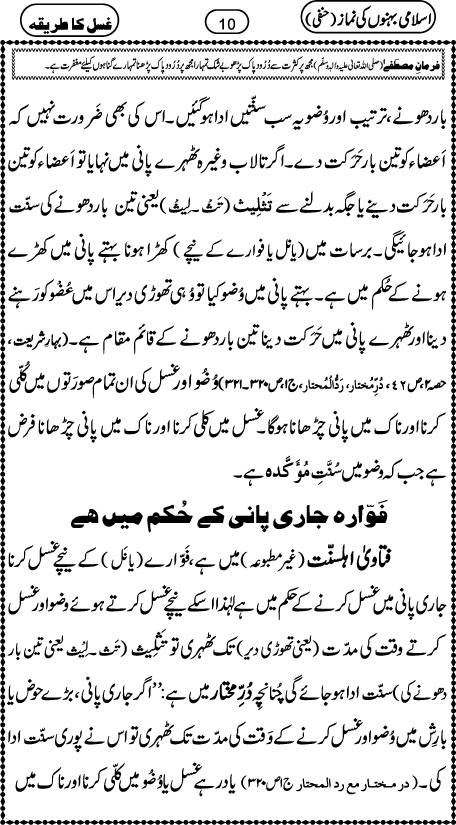 اسلامی بہنوں کی نماز (حنفی)
10
غسل کا طریقہ
فرمانِ مصطَفٰے (صلی اللہ تعالیٰ علیہ واٰلہٖ وسلّم) مجھ پر کثرت سے دُرُودِ پاک پڑھو بے شک تمہارا مجھ پر دُرُودِ پاک پڑھنا تمہارے گناہوں کیلئے مغفرت ہے۔
بار دھونے، ترتیب اور وُضو یہ سب سنّتیں ادا ہوگئیں۔ اس کی بھی ضَرورت نہیں کہ
اَعضاء کو تین بار حَرَکت دے۔ اگر تالاب وغیرہ ٹھہرے پانی میں نہایا تو اَعضاء کو تین
بار حَرَکت دینے یا جگہ بدلنے سے تَثْلِیث (تَث۔لِیث) یعنی تین بار دھونے کی سنّت
ادا ہو جائیگی۔ برسات میں (یا نل یا فوارے کے نیچے) کھڑا ہونا بہتے پانی میں کھڑے
ہونے کے حُکم میں ہے۔ بہتے پانی میں وُضو کیا تو وُہی تھوڑی دیر اس میں عُضْو کو رَہنے
دینا اور ٹھہرے پانی میں حَرَکت دینا تین بار دھونے کے قائم مقام ہے۔ (بہارِ شریعت،
حصہ۲، ص ۴۲، دُرِّمُختار، رَدُّالْمُحتار، ج۱، ص ۳۲۰۔۳۲۱) وُضُو اور غسل کی ان تمام صورَتوں میں کُلّی
کرنا اور ناک میں پانی چڑھانا ہوگا۔ غسل میں کلی کرنا اور ناک میں پانی چڑھانا فرض
ہے جب کہ وضو میں سُنَّتِ مُؤَکَّدہ ہے۔
فَوّارہ جاری پانی کے حُکم میں ھے
فتاویٰ اہلسنّت (غیر مطبوعہ) میں ہے، فَوّارے (یا نَل) کے نیچے غسل کرنا
جاری پانی میں غسل کرنے کے حکم میں ہے لہٰذا اسکے نیچے غسل کرتے ہوئے وضو اور غسل
کرتے وقت کی مدّت (یعنی تھوڑی دیر) تک ٹھہری تو تَثْلِیث (تَث۔لِیث یعنی تین بار
دھونے کی) سنّت ادا ہو جائے گی چُنانچِہ دُرِّ مختار میں ہے: ’’اگر جاری پانی، بڑے حوض یا
بارِش میں وُضو اور غسل کرنے کے وَقت کی مدّت تک ٹھہری تو اس نے پوری سنّت ادا
کی۔ (در مختار مع رد المحتار ج۱ ص ۳۲۰) یاد رہے غسل یا وُضُو میں کُلّی کرنا اور ناک میں